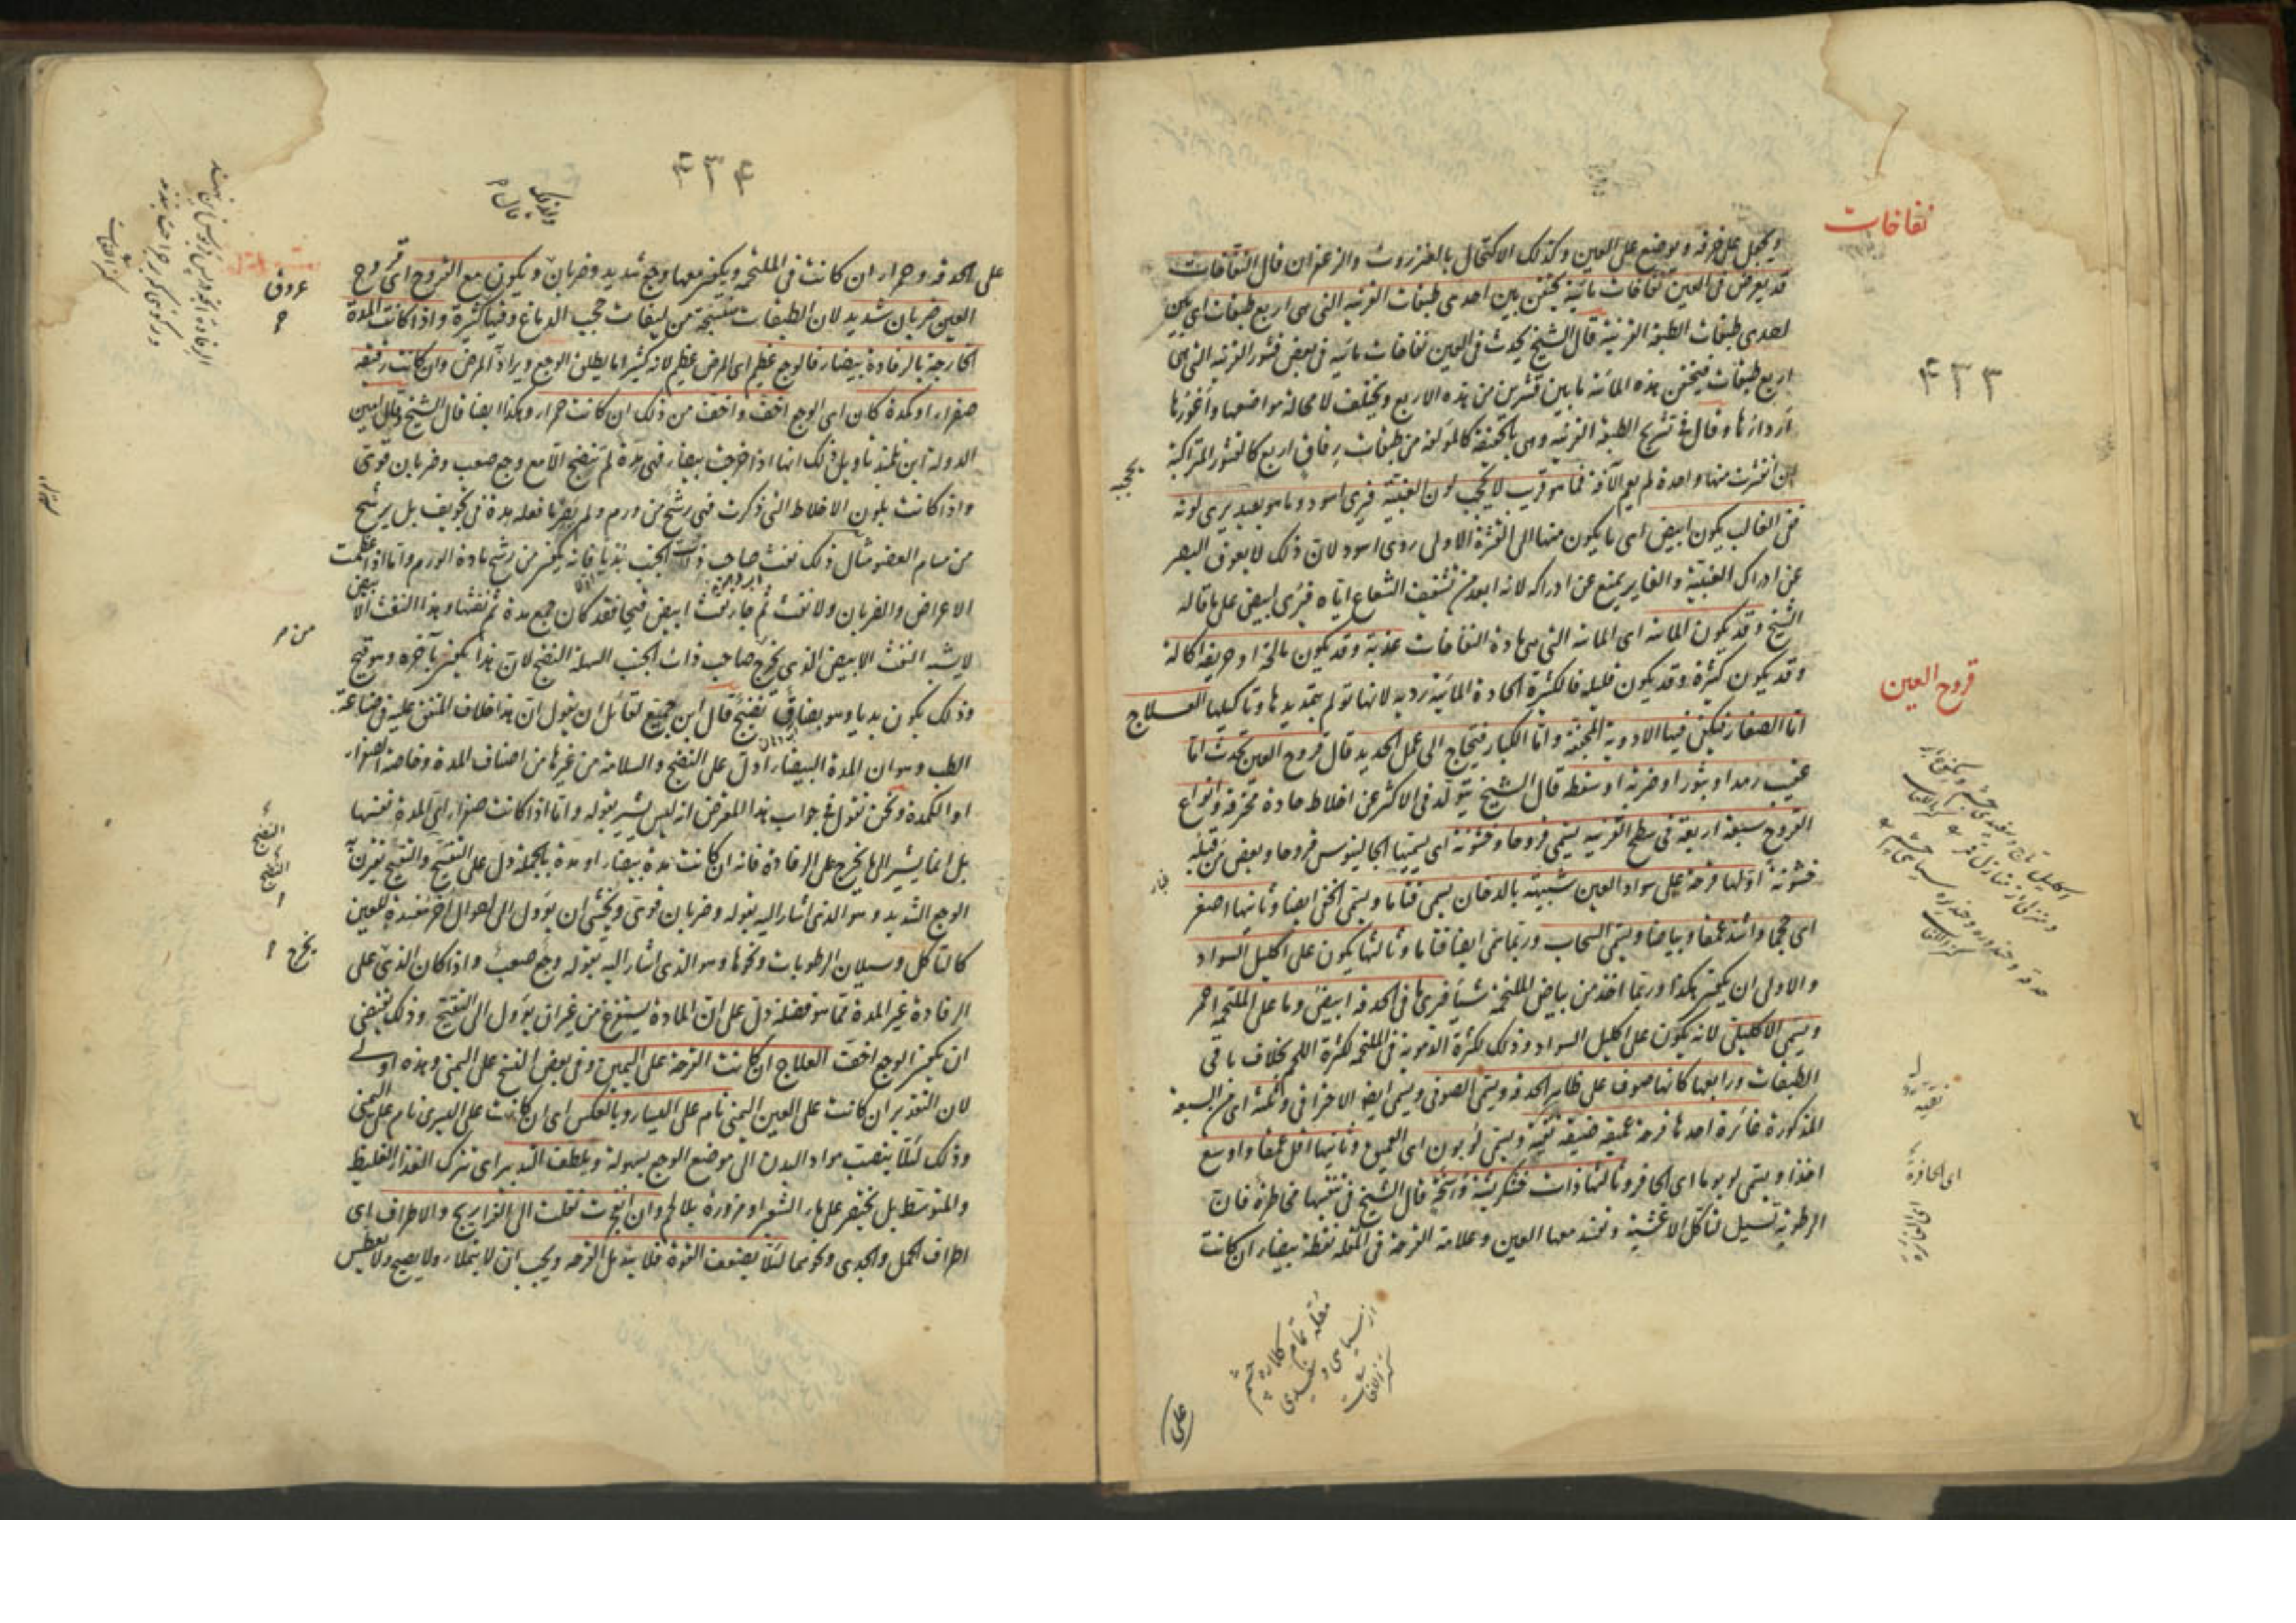 نفاخات
ويجعل على خرقة ويوضع على العين وكذلك الاكتحال بالعنزروت والزعفران قال النفاخات
قد يعرض فى العين نفاخات مائية تحتقن بين احدى طبقات القرنية التى هى اربع طبقات اى بين
احدى طبقات الطبقة القرنية قال الشيخ يحدث فى العين نفاخات مائية فى بعض قشور القرنية التى هى
اربع طبقات فتحتقن هذه المائية ما بين قشرين من هذه الاربع ويختلف لا محالة مواضعها واغورها
۴۳۳
اردائها وقال فى تشريح الطبقة القرنية وهى بالحقيقة كالمؤلفة من طبقات رقاق اربع كالقشور المتراكبة
ان انقشرت منها واحدة لم يعم الآفة فما هو قريب لا يحجب لون العنبية فيرى اسود وما هو بعيد يرى لونه
يحجب
فى الغالب يكون ابيض اى ما يكون منها الى القشرة الاولى رؤى اسود لان ذلك لا يعوق البصر
عن ادراك العنبية والغاير يمنع عن ادراكه لانه ابعد من تشفيف الشعاع اياه فيرى ابيض على ما قاله
الشيخ وقد يكون المائية اى المائية التى هى مادة النفاخات عذبة وقد يكون مالحة او حريفة اكالة
وقد يكون كثيرة وقد يكون قليلة فالكثيرة الحادة المائية ردية لانها تولم بتمديدها وتاكيلها العلاج
قروح العين
اما الصغار فيكفى فيها الادوية المجففة واما الكبار فيحتاج الى عمل الحديد قال قروح العين تحدث اما
عقيب رمد او بثور او ضربة او سقطة قال الشيخ يتولد فى الاكثر عن اخلاط حادة محرقة وانواع
القروح سبعة اربعة فى سطح القرنية يسمى قروحا وخشونة اى يسميها جالينوس قروحا وبعض من قبله
خشونة اولها قرحة على سواد العين شبيهة بالدخان يسمى قتاما ويسمى الخفى ايضا وثانيها اصغر
اى حجما واشد عمقا وبياضا ويسمى السحاب وربما سمى ايضا قتاما وثالثها يكون على اكليل السواد
والاولى ان يكون هكذا وربما اخذ من بياض الملتحمة شيئا فيرى ما فى الحدقة ابيض وما على الملتحمة احمر
ويسمى الاكليلى لانه يكون على اكليل السواد وذلك لكثرة الدموية فى الملتحمة لكثرة اللحم بخلاف باقى
الطبقات ورابعها كانها صوف على ظاهر الحدقة ويسمى الصوفى ويسمى ايضا الاحتراقى وثلثة اى من السبعة
المذكورة غائرة احدها قرحة عميقة ضيقة نقية ويسمى لوبون اى العميق وثانيها اقل عمقا واوسع
نقية
اخذا ويسمى لوبوما اى الحافرة وثالثها ذات خشكريشة وسخة قال الشيخ فى تنقيتها مخاطرة فان
اى الحافرة
الرطوبة تسيل لتاكل الاغشية وتفسد معها العين وعلامة القرحة فى المقلة نقطة بيضاء ان كانت
مقله تمام كلاره چشم
از سياهى و سفيدى
كنز اللغات
على
۴۳۴
على الحدقة وحمراء ان كانت فى الملتحمة ويكون معها وجع شديد وضربان ويكون مع القروح اى قروح
العين ضربان شديد لان الطبقات منتسجة من ليفات حجب الدماغ وفيها كثرة واذا كانت المدة
عروق
الخارجة بالرفادة بيضاء فالوجع عظيم اى المرض عظيم لانه كثيرا ما يطلق الوجع ويراد المرض وان كانت رقيقة
صفراء او كمدة كان اى الوجع اخف واخف من ذلك ان كانت حمراء وهكذا ايضا قال الشيخ وقال امين
الدولة ابن تلميذ تاويل ذلك انها اذا خرجت بيضاء فهى مدة لم تنضج الا مع وجع صعب وضربان قوى
واذا كانت بلون الاخلاط التى ذكرت فهى رشح من ورم ولم يصر ما فعله مدة فى تجويف بل يرشح
من مسام العضو مثال ذلك نفث صاحب ذات الجنب بدئا فانه يكون من رشح مادة الورم واما اذا عظمت
الاعراض والضربان ولا نفث ثم جاء نفث ابيض قيحا فقد كان جمع مدة ثم نفثها وهذا النفث الابيض
لا يشبه النفث الابيض الذى يخرج صاحب ذات الجنب السهلة النضج لان هذا يكون بآخره وهو قيح
وذلك يكون بديا وهو بصاق نضيج قال ابن جميع لقائل ان يقول ان هذا خلاف المتفق عليه فى صناعة
الطب وهو ان المدة البيضاء ادل على النضج والسلامة من غيرها من اصناف المدة وخاصة الصفراء
او الكمدة ونحن نقول فى جواب هذا المعترض انه ليس يشير بقوله واما اذا كانت صفراء الى المدة نفسها
بل انما يشير الى ما يخرج على الرفادة فانه ان كانت مدة بيضاء او مدة بالجملة دل على التقيح والتقيح يقرن به
الوجع الشديد وهو الذى اشار اليه بقوله وضربان قوى ويخشى ان يؤول الى احوال اخر مفسدة للعين
كالتاكل وسيلان الرطوبات ونحوها وهو الذى اشار اليه بقوله وجع صعب واذا كان الذى على
يخرج
الرفادة غير المدة مما هو فضلة دل على ان المادة يستفرغ من غير ان يؤول الى التقيح وذلك يقتضى
ان يكون الوجع اخف العلاج ان كانت القرحة على اليمين وفى بعض النسخ على اليمنى وهذه اولى
لان التقدير ان كانت على العين اليمنى نام على اليسار وبالعكس اى ان كانت على اليسرى نام على اليمنى
وذلك لئلا ينصب مواد البدن الى موضع الوجع بسهولة ويلطف التدبير اى يترك الغذاء الغليظ
والمتوسط بل يختصر على ماء الشعير او مزورة بلا لحم وان انفجرت نقلت الى الفراريج والاطراف اى
اطراف الحمل والجدى ونحوهما لئلا يضعف القوة فلا يندمل القرحة ويجب ان لا يمتلاء ولا يصيح ولا يعطس